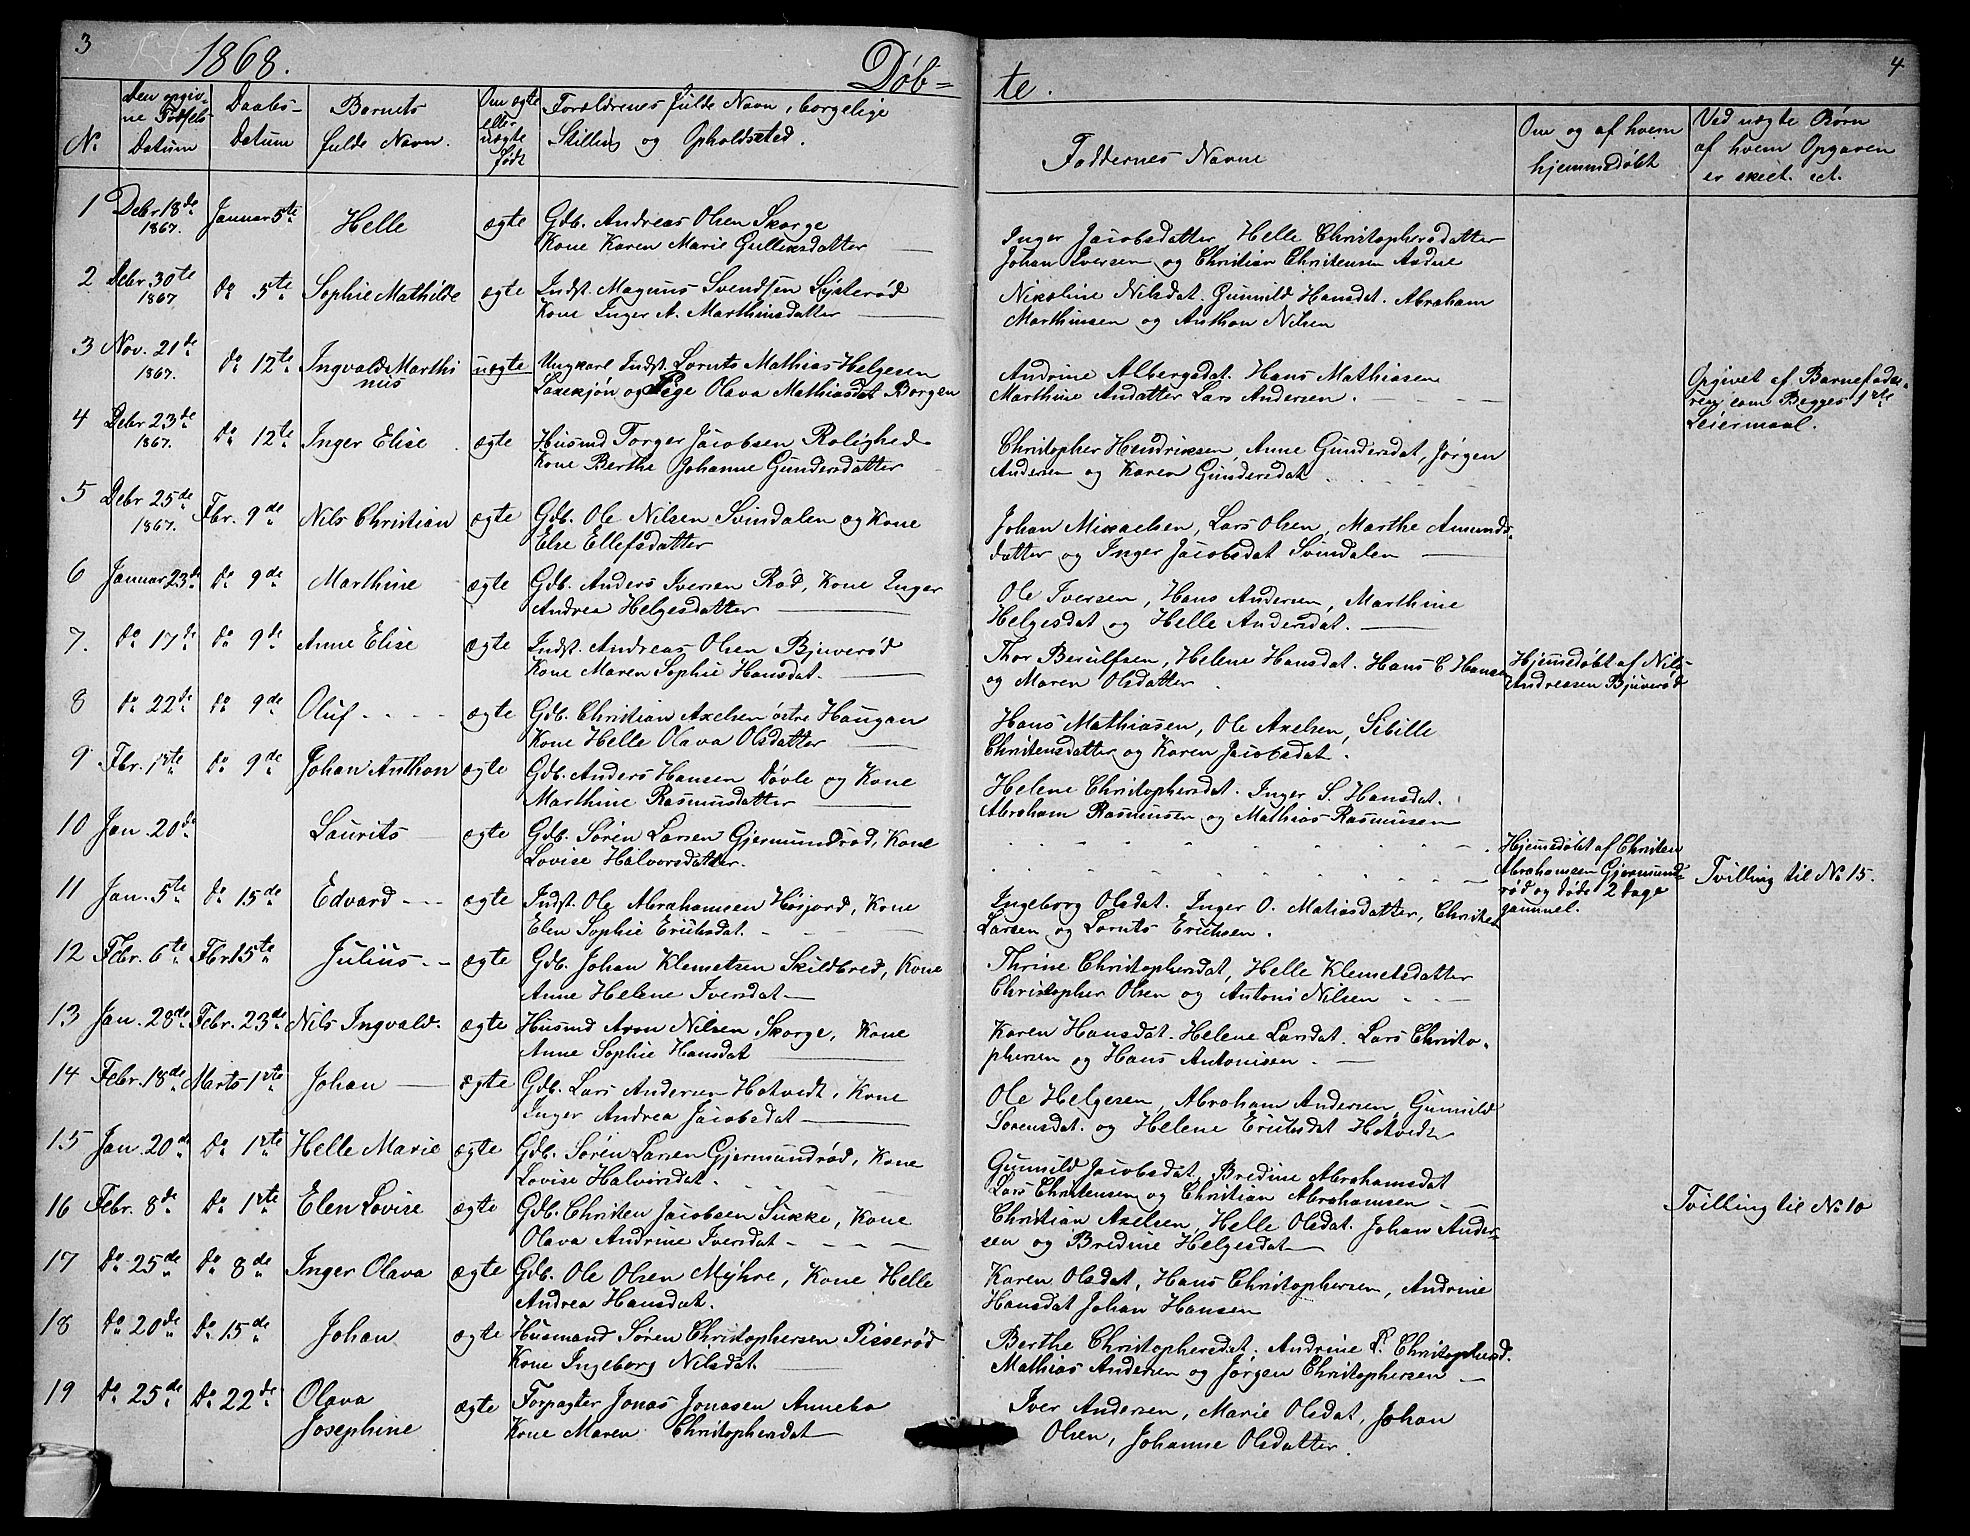 3
1868.
Døb=
te.
4
No
Den opgiv-
ne Fødsels
Datum
Daabs-
Datum
Barnets
fulde Navn.
Om ægte
eller
uægte
født
Forældrenes fulde Navn, borgelige
Stilling og Opholdssted.
Faddernes Navne
Om og af hvem
hjemmedøbt
Ved uægte Børn
af hvem Opgaven
er skeet. ect.
1 Debr 18de Januar 5te Helle ægte Gdb. Andreas Olsen Skorge
1867. Kone Karen Marie Gulliksdatter
Inger Jacobsdatter, Helle Christophersdatter
Johan Iversen og Christian Christensen Andue
2 Debr 30te do 5te Sophie Mathilde ægte Indst. Magnus Svendsen Lysterød
1867 Kone Inger A. Marthinsdatter
Nikoline Nilsdat. Gunnild Hansdat. Abraham
Marthinsen og Anthon Nilsen
3 Nov. 21de do 12te Ingvald Marthi uægte Ungkarl Indst. Loruts Mathias Helgesen
1867. nus Laxesjøn og Pige Olava Mathiasdat Borgen
Andrine Albergsdat. Hans Mathiasen
Marthine Andatter Lars Andersen.
Opgivet af Barnefade-
ren som Begges 1ste
Leiermaal.
4 Debr 23de do 12te Inger Elise ægte Husmd Torger Jacobsen Rolighed
1867. Kone Berthe Johanne Gundersdatter
Christopher Hendriksen, Anne Gundersdat, Jørgen
Andersen og Karen Gundersdat
5 Debr 25de Fbr. 9de Nils Christian ægte Gdb. Ole Nilsen Svindalen og Kone
1867. Else Ellefsdatter
Johan Mikaelsen, Lars Olsen, Marthe Amunds-
datter og Inger Jacobsdat Svindalen
6 Januar 23de do 9de Marthine ægte Gdb. Anders Iversen Rød, Kone Inger
Andrea Helgesdatter
Ole Iversen, Hans Andersen, Marthine
Helgesdat og Helle Andersdat.
7. do 17de do 9de Anne Elise ægte Indst. Andreas Olsen Bjuverød
Kone Maren Sophie Hansdat.
Thor Berulfsen, Helene Hansdat. Hans C Hansen
og Maren Olsdatter.
Hjemedøbt af Nils
Andreasen Bjuverød
8 do 22de do 9de Oluf ægte Gdb. Christian Axelsen østre Haugan
Kone Helle Olava Olsdatter
Hans Mathiasen, Ole Axelsen, Sibille
Christensdatter og Karen Jacobsdat.
9 Fbr. 1ste do 9de Johan Anthon ægte Gdb. Anders Hansen Døvle og Kone
Marthine Rasmusdatter
Helene Christophersdat. Inger S. Hansdat.
Abraham Rasmusen og Mathias Rasmusen
10 Jan. 20de Laurits ægte Gdb. Sørin Larsen Gjermundrød, Kone
Lovise Halvorsdatter.
Hjemedøbt af Christen
Abrahamsen Gjermund-
rød og døde 2 Dage
gammel.
Tvilling til No 15.
11 Jan. 5te do 15de Edvard ægte Indst. Ole Abrahamsen Høsjord, Kone
Elen Sophie Eriksdat.
Ingeborg Olsdat. Inger O. Matiasdatter, Christen
Larsen og Loruts Eriksen.
12 Febr. 6te Fbr 15te Julius ægte Gdb. Johan Klemetsen Skildbred, Kone
Anne Helene Iversdat
Thrine Christophersdat, Helle Klemetsdatter
Christopher Olsen og Antoni Nilsen
13 Jan. 28de Febr. 23de Nils Ingvald. ægte Husmd Aron Nilsen Skorge, Kone
Anne Sophie Hansdat
Karen Hansdat. Helene Larsdat. Lars Christo-
phersen og Hans Antonisen.
14 Febr. 18de Marts 1ste Johan ægte Gdb. Lars Andersen Hotvedt, Kone
Inger Andrea Jacobsdat
Ole Helgesen, Abraham Andersen, Gunnild
Sørensdat. og Helene Eriksdat Hotvedt
15 Jan. 20de do 1ste Helle Marie ægte Gdb. Sørin Larsen Gjermundrød, Kone
Lovise Halvorsdat.
Gunnild Jacobsdat, Bredine Abrahamsdat
Lars Christensen og Christian Abrahamsen
Tvilling til No 10
16 Febr. 8de do 1ste Elen Lovise ægte Gdb. Christen Jacobsen Sukke, Kone
Olava Andrine Iversdat
Christian Axelsen, Helle Olsdat. Johan Ander-
sen og Bredine Helgesdat
17 do 25de do 8de Inger Olava ægte Gdb. Ole Olsen Myhre, Kone Helle
Andrea Hansdat.
Karen Olsdat, Hans Christophersen, Andrine
Hansdat Johan Hansen
18 do 20de do 15de Johan ægte Husmand Søren Christophersen Pisserød
Kone Ingeborg Nilsdat.
Berthe Christophersdat. Andrine L. Christophersd.
Mathias Andersen og Jørgen Christophersen
19 do 25de do 22de Olava ægte Forpagter Jonas Jonasen Annebo
Josephine Kone Maren Christophersdat
Iver Andersen, Marie Olsdat, Johan
Olsen, Johanne Olsdatter.